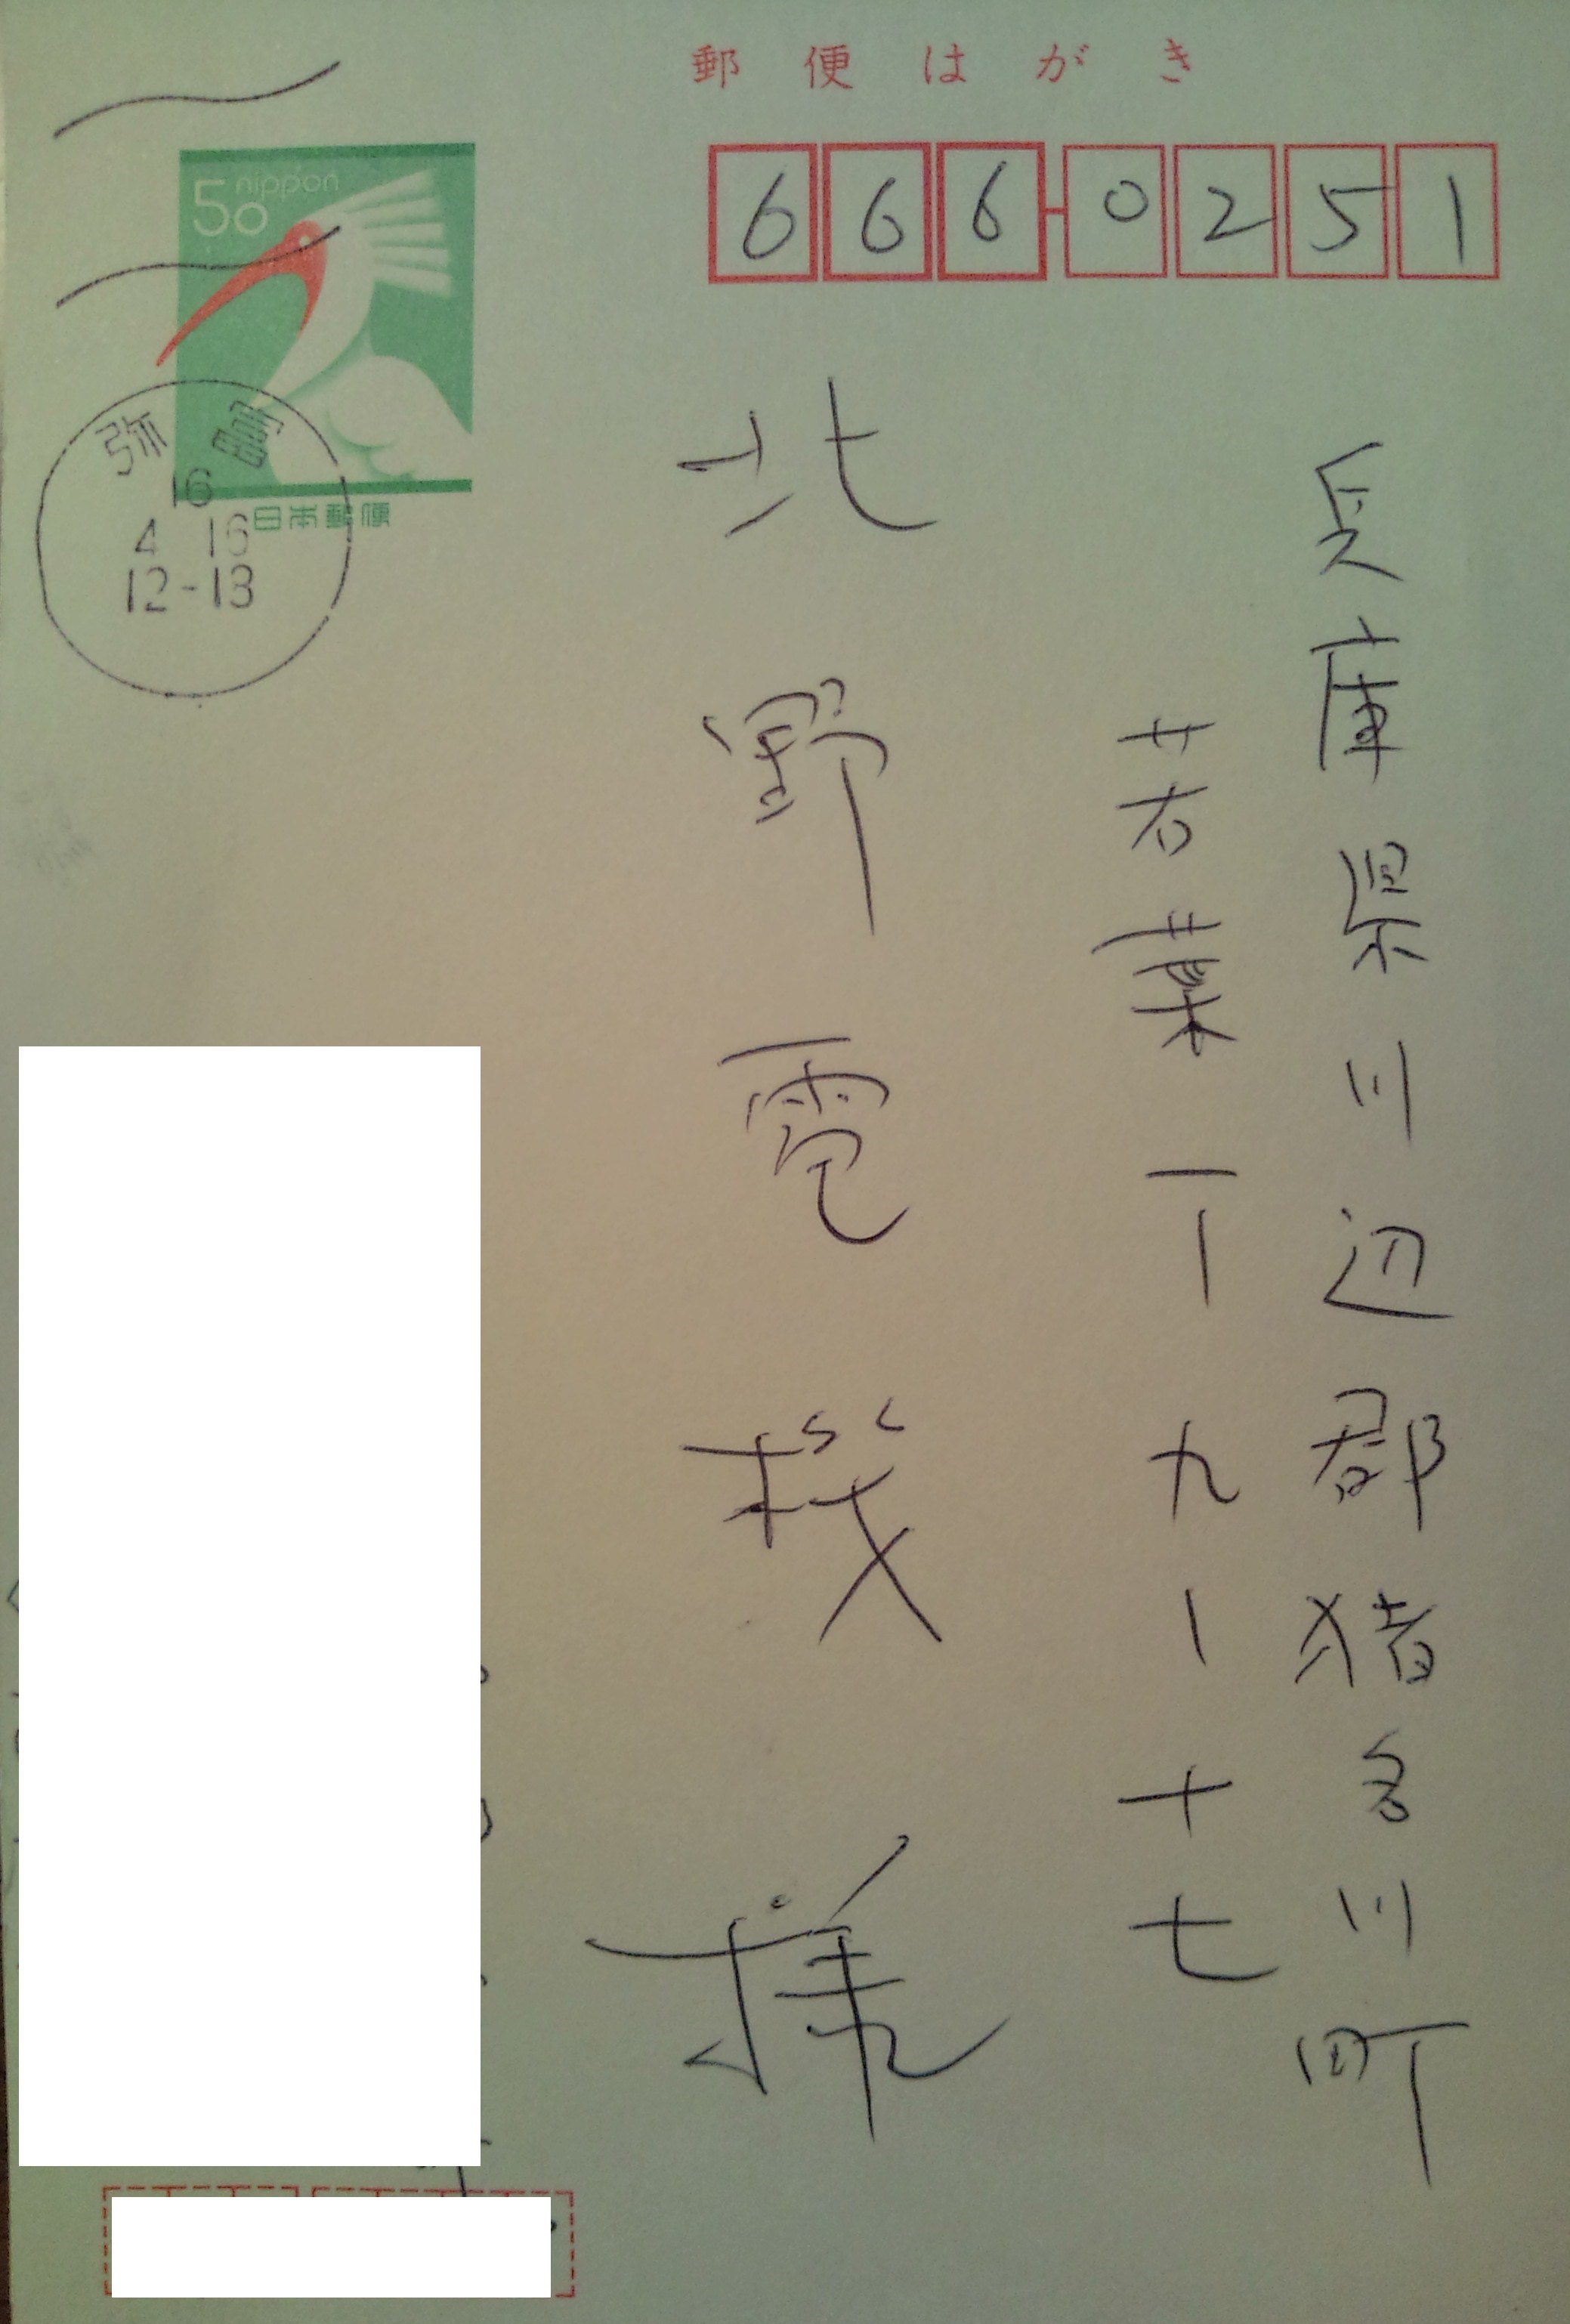 郵便はがき
666-0251
50 nippon
日本郵便
弥富
16
4 16
12-13
兵庫県川辺郡猪名川町
若葉一ー九ー十七
北野電機様